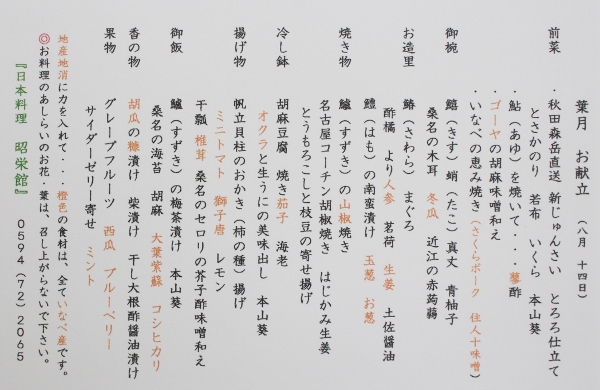 葉月　お献立　（八月　十四日）
前菜　・秋田森岳直送　新じゅんさい　とろろ仕立て
とさかのり　若布　いくら　本山葵
・鮎（あゆ）を焼いて・・・蓼酢
・ゴーヤの胡麻味噌和え
・いなべの恵み焼き（さくらポーク　住人十味噌）
御椀　鱚（きす）蛸（たこ）真丈　青柚子
桑名の木耳　冬瓜　近江の赤蒟蒻
お造里　鰆（さわら）　まぐろ
酢橘　より人参　茗荷　生姜　土佐醤油
鱧（はも）の南蛮漬け　玉葱　お葱
焼き物　鱸（すずき）の山椒焼き
名古屋コーチン胡椒焼き　はじかみ生姜
とうもろこしと枝豆の寄せ揚げ
冷し鉢　胡麻豆腐　焼き茄子　海老
オクラと生うにの美味出し　本山葵
揚げ物　帆立貝柱のおかき（柿の種）揚げ
ミニトマト　獅子唐　レモン
干瓢　椎茸　桑名のセロリの芥子酢味噌和え
御飯　鱸（すずき）の梅茶漬け　本山葵
桑名の海苔　胡麻　大葉紫蘇　コシヒカリ
香の物　胡瓜の糠漬け　柴漬け　干し大根酢醤油漬け
果物　グレープフルーツ　西瓜　ブルーベリー
サイダーゼリー寄せ　ミント
地産地消に力を入れて・・・橙色の食材は、全ていなべ産です。
◎お料理のあしらいのお花・葉は、召し上がらないで下さい。
『日本料理　昭栄館』　0594（72）2065